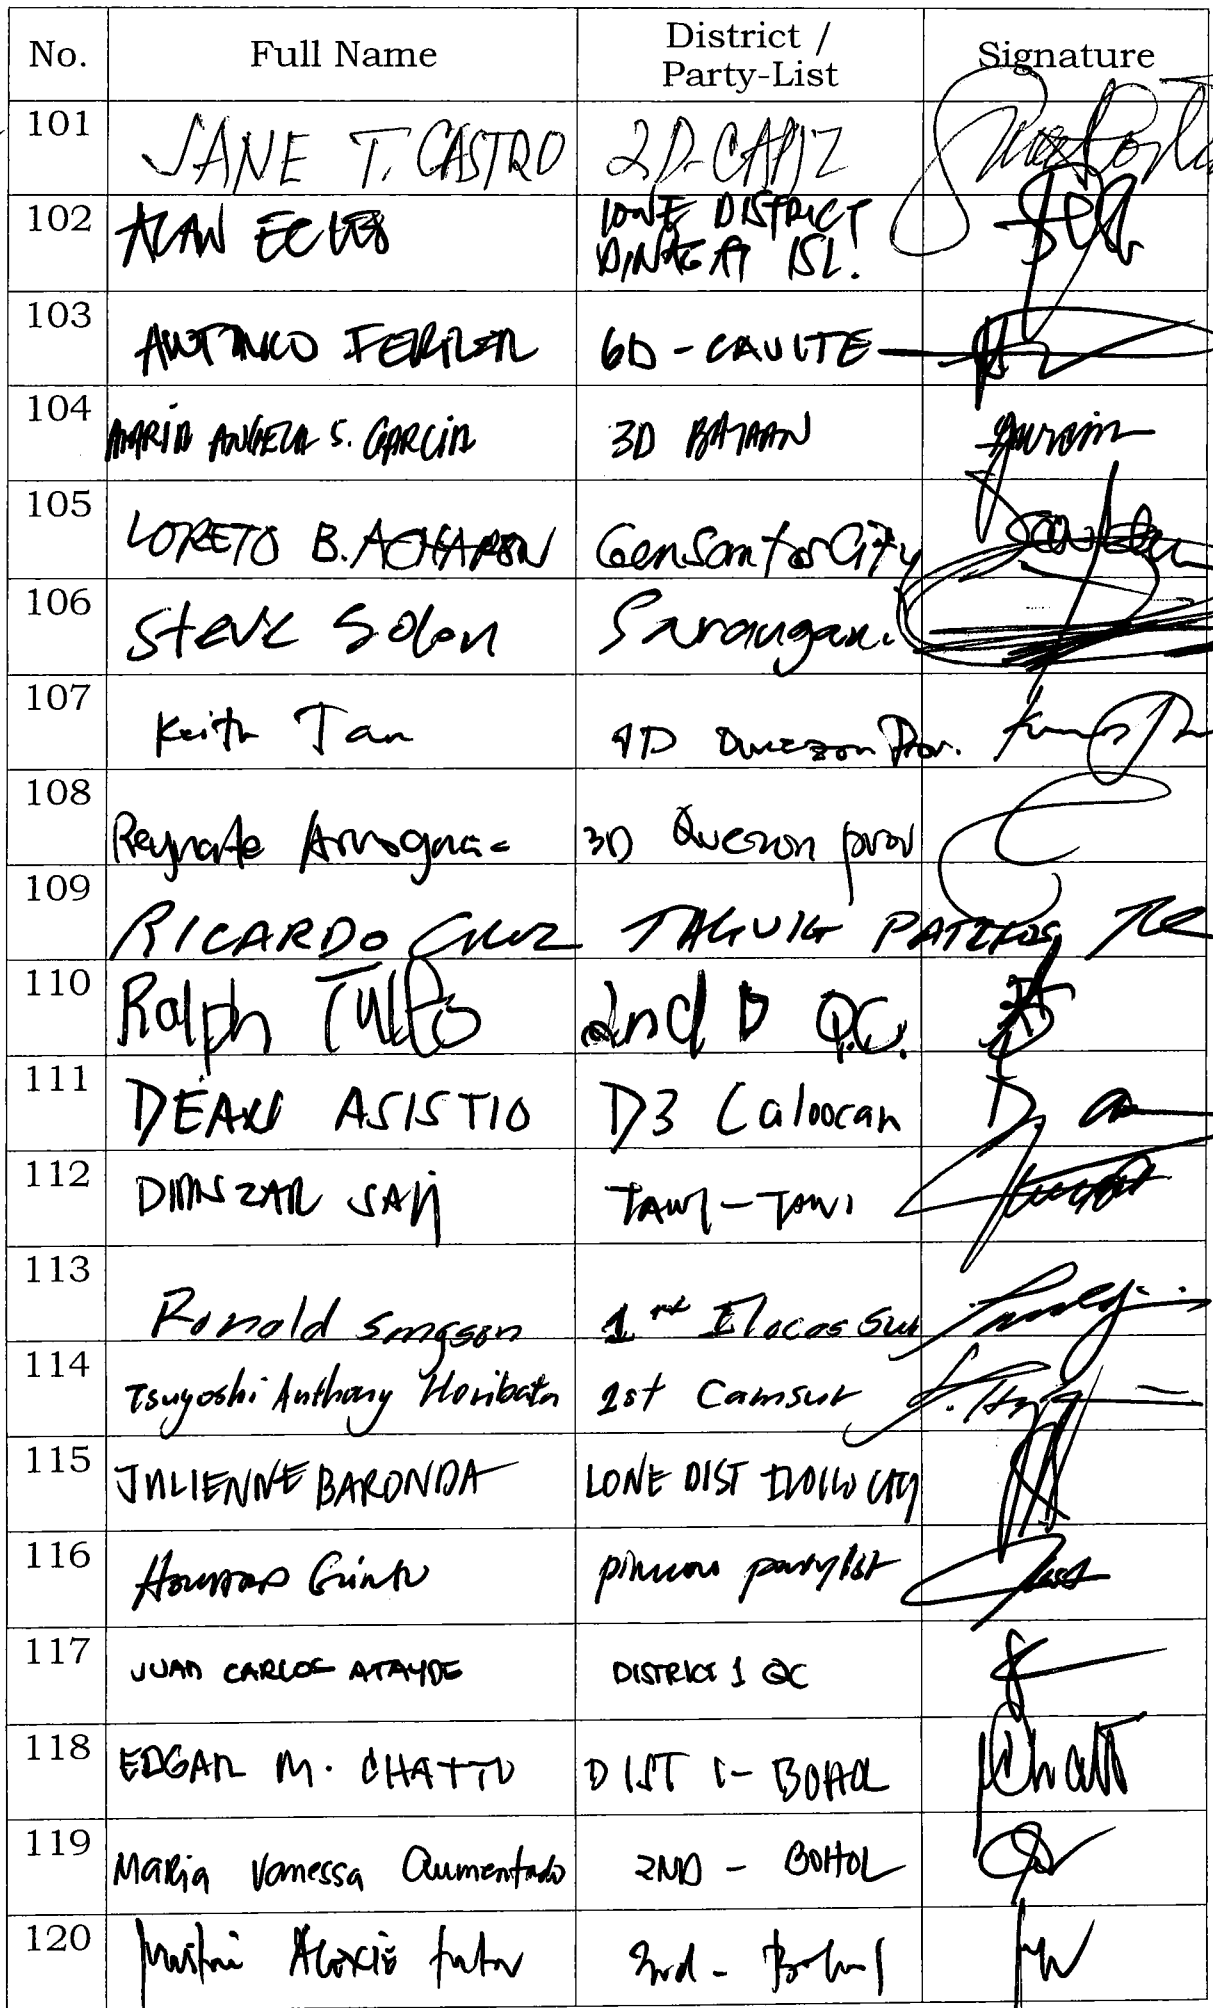 No. Full Name District / Party-List Signature
101 JANE T. CASTRO 2D-CAPIZ
102 ALAN ECLEO LONE DISTRICT
DINAGAT ISL.
103 ANTONIO FERRER 6D - CAVITE
104 MARIA ANGELA S. GARCIA 3D BATAAN
105 LORETO B. ACHARON GenSantos City
106 Steve Solon Sarangani
107 Keith Tan 4D Quezon Prov.
108 Reynante Arrogancia 3D Quezon prov
109 RICARDO CRUZ TAGUIG PATEROS
110 Ralph Tulfo 2nd D Q.C.
111 DEAN ASISTIO D3 Caloocan
112 DIMSZAR SALI TAWI-TAWI
113 Ronald Singson 1st Ilocos Sur
114 Tsuyoshi Anthony Horibata 1st Camsur
115 JULIENNE BARONDA LONE DIST ILOILO CITY
116 Howard Guintu pinuno partylist
117 JUAN CARLOS ATAYDE DISTRICT 1 QC
118 EDGAR M. CHATTO DIST 1- BOHOL Chatto
119 Maria Vanessa Aumentado 2ND - BOHOL
120 Alexie Tutor 3rd - Bohol